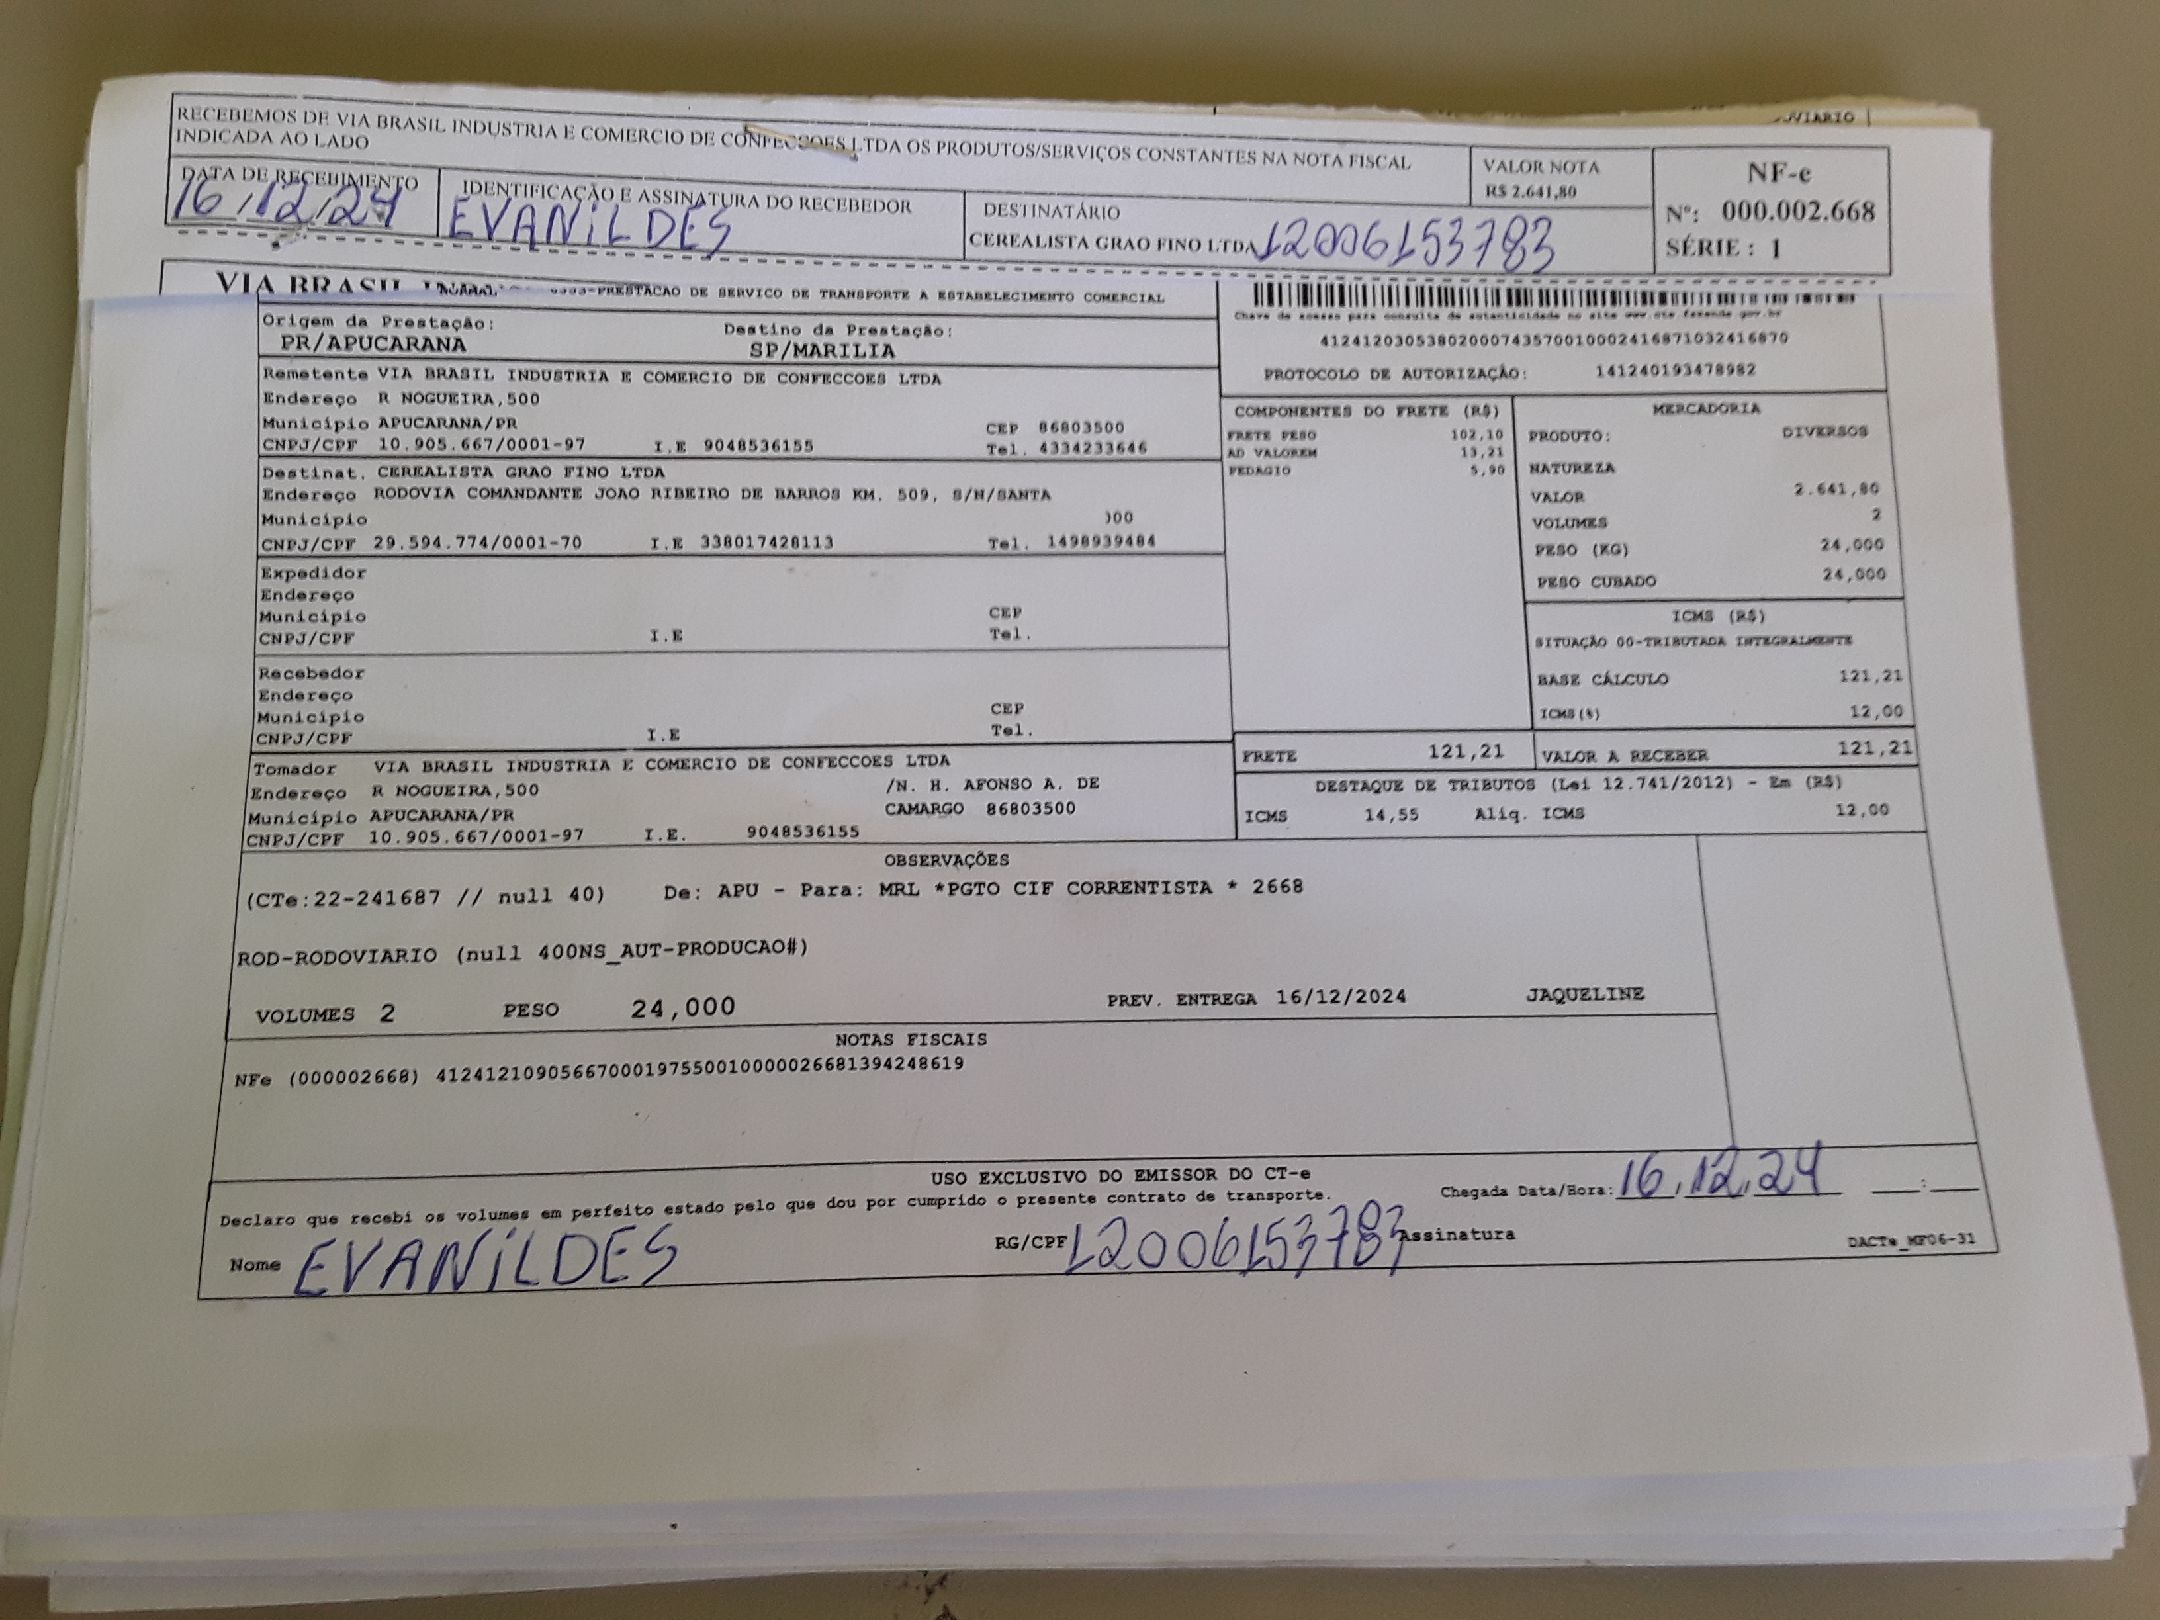 OVIARIO
RECEBEMOS DE VIA BRASIL INDUSTRIA E COMERCIO DE CONFECCOES LTDA OS PRODUTOS/SERVIÇOS CONSTANTES NA NOTA FISCAL
INDICADA AO LADO
VALOR NOTA
R$ 2.641,80
NF-e
Nº: 000.002.668
SÉRIE : 1
DATA DE RECEBIMENTO
16.12.24
IDENTIFICAÇÃO E ASSINATURA DO RECEBEDOR
EVANILDES
DESTINATÁRIO
CEREALISTA GRAO FINO LTDA 12006153783
VIA BRASIL
PRESTACAO DE SERVICO DE TRANSPORTE A ESTABELECIMENTO COMERCIAL
Origem da Prestação: Destino da Prestação:
PR/APUCARANA SP/MARILIA
Chave de acesso para consulta de autenticidade no site www.cte.fazenda.gov.br
41241203053802000743570010002416871032416870
PROTOCOLO DE AUTORIZAÇÃO: 141240193478982
Remetente VIA BRASIL INDUSTRIA E COMERCIO DE CONFECCOES LTDA
Endereço R NOGUEIRA,500
Município APUCARANA/PR CEP 86803500
CNPJ/CPF 10.905.667/0001-97 I.E 9048536155 Tel. 4334233646
Destinat. CEREALISTA GRAO FINO LTDA
Endereço RODOVIA COMANDANTE JOAO RIBEIRO DE BARROS KM. 509, S/N/SANTA
Município 00
CNPJ/CPF 29.594.774/0001-70 I.E 338017428113 Tel. 1498939484
Expedidor
Endereço
Município CEP
CNPJ/CPF I.E Tel.
Recebedor
Endereço
Município CEP
CNPJ/CPF I.E Tel.
Tomador VIA BRASIL INDUSTRIA E COMERCIO DE CONFECCOES LTDA
Endereço R NOGUEIRA,500 /N. H. AFONSO A. DE
Município APUCARANA/PR CAMARGO 86803500
CNPJ/CPF 10.905.667/0001-97 I.E. 9048536155
COMPONENTES DO FRETE (R$)
FRETE PESO 102,10
AD VALOREM 13,21
PEDAGIO 5,90
MERCADORIA
PRODUTO: DIVERSOS
NATUREZA
VALOR 2.641,80
VOLUMES 2
PESO (KG) 24,000
PESO CUBADO 24,000
ICMS (R$)
SITUAÇÃO 00-TRIBUTADA INTEGRALMENTE
BASE CÁLCULO 121,21
ICMS(%) 12,00
FRETE 121,21 VALOR A RECEBER 121,21
DESTAQUE DE TRIBUTOS (Lei 12.741/2012) - Em (R$)
ICMS 14,55 Aliq. ICMS 12,00
OBSERVAÇÕES
(CTe:22-241687 // null 40) De: APU - Para: MRL *PGTO CIF CORRENTISTA * 2668
ROD-RODOVIARIO (null 400NS_AUT-PRODUCAO#)
VOLUMES 2 PESO 24,000 PREV. ENTREGA 16/12/2024 JAQUELINE
NOTAS FISCAIS
NFe (000002668) 41241210905667000197550010000026681394248619
USO EXCLUSIVO DO EMISSOR DO CT-e
Declaro que recebi os volumes em perfeito estado pelo que dou por cumprido o presente contrato de transporte.
Chegada Data/Hora: 16.12.24 :
Nome EVANILDES RG/CPF 12006153783 Assinatura
DACTe_MF06-31